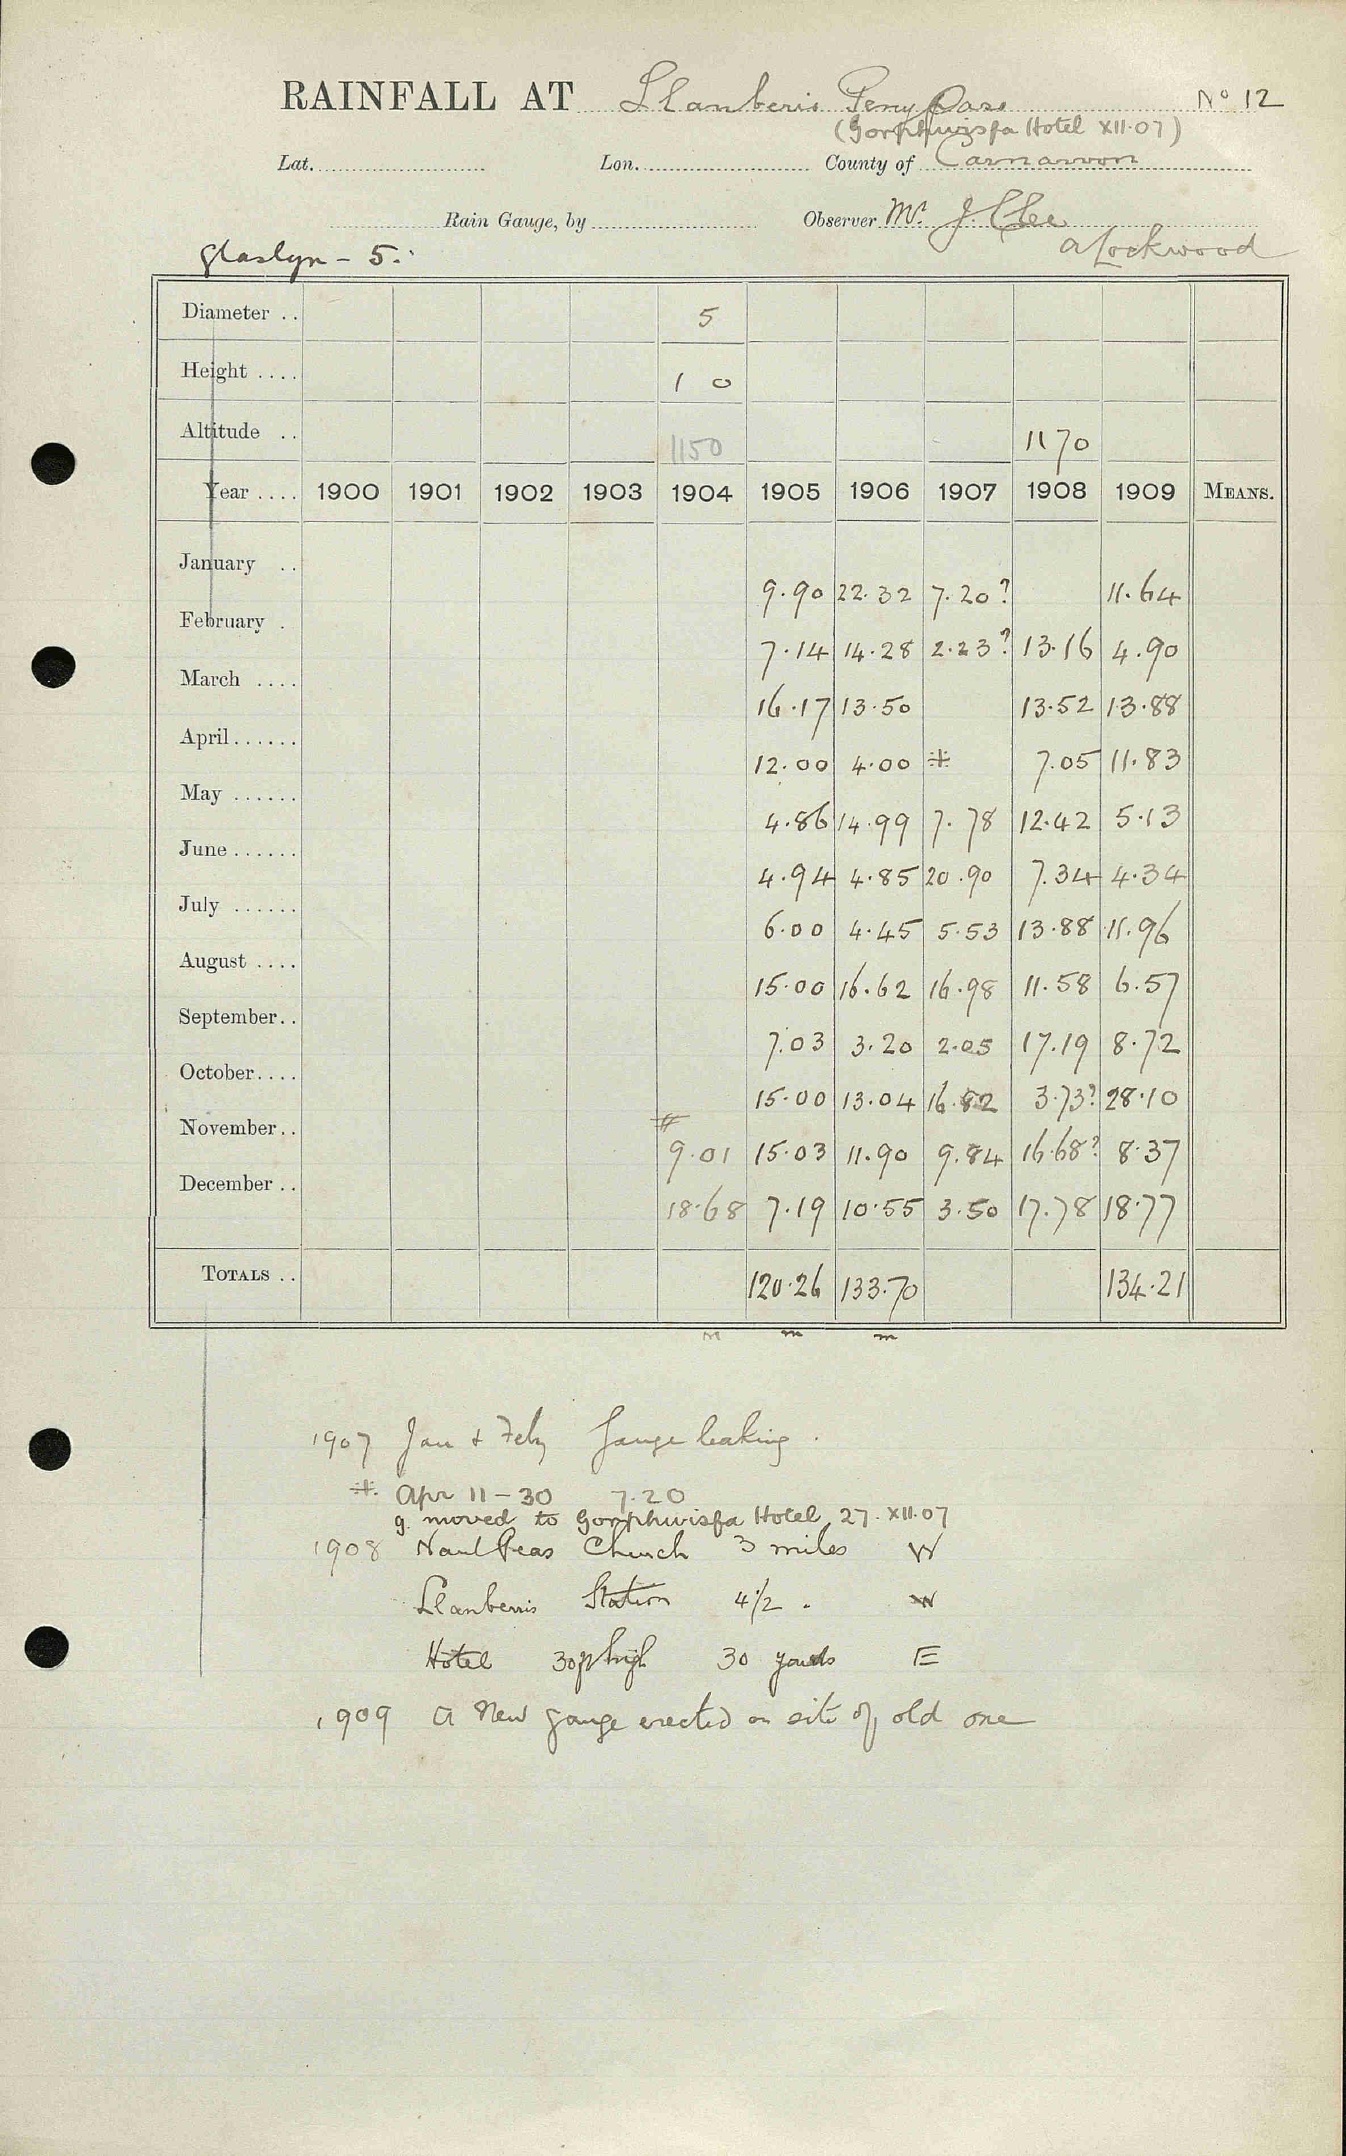 RAINFALL AT Llanberis Peny Pass No 12
(Gorphwysfa Hotel XII.07)
Lat. Lon. County of Carnarvon
Rain Gauge, by Observer Mr. J. Clee
A Lockwood
Glaslyn - 5.
Diameter .. 5
Height .... 1 0
Altitude .. 1150 1170
Year .... 1900 1901 1902 1903 1904 1905 1906 1907 1908 1909 MEANS.
January .. 9.90 22.32 7.20? 11.64
February . 7.14 14.28 2.23? 13.16 4.90
March .... 16.17 13.50 13.52 13.88
April ...... 12.00 4.00 # 7.05 11.83
May ...... 4.86 14.99 7.78 12.42 5.13
June ...... 4.94 4.85 20.90 7.34 4.34
July ...... 6.00 4.45 5.53 13.88 11.96
August .... 15.00 16.62 16.98 11.58 6.57
September .. 7.03 3.20 2.05 17.19 8.72
October .... 15.00 13.04 16.82 3.73? 28.10
November .. # 9.01 15.03 11.90 9.84 16.68? 8.37
December .. 18.68 7.19 10.55 3.50 17.78 18.77
TOTALS .. 120.26 133.70 134.21
m m m
1907 Jan & Feby Gauge leaking.
#. Apr 11-30 7.20
g. moved to Gorphwisfa Hotel 27.XII.07
1908 Church 3 miles W
Llanberris Station 4½ " W
Hotel 30ft high 30 yards E
1909 A New gauge erected on site of old one